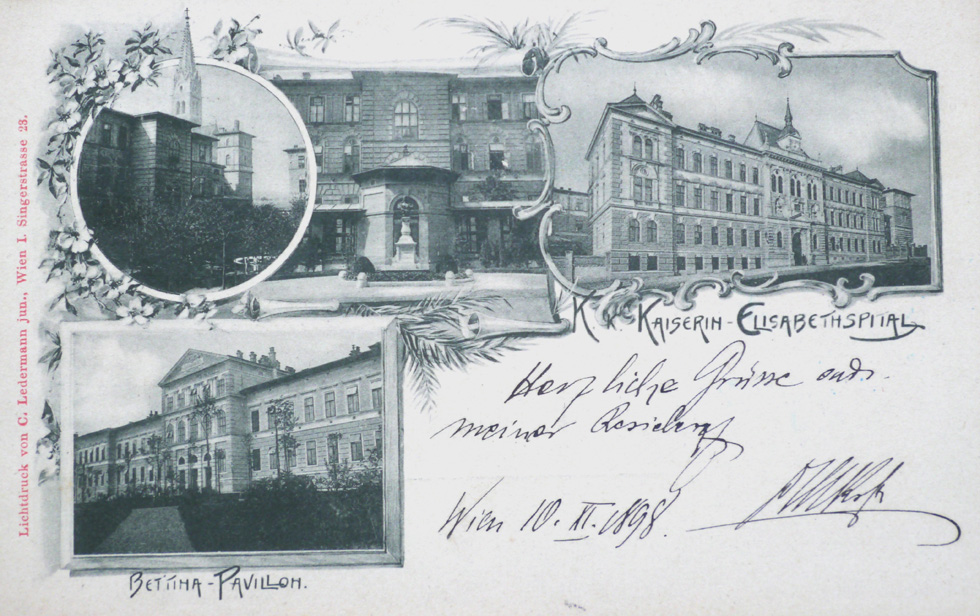 Lichtdruck von C. Ledermann jun., Wien I. Singerstrasse 23.
K. K. KAISERIN-ELISABETHSPITAL
Herzliche Grüsse aus
meiner Residenz
Wien 10. XI. 1898.
BETTINA-PAVILLON.